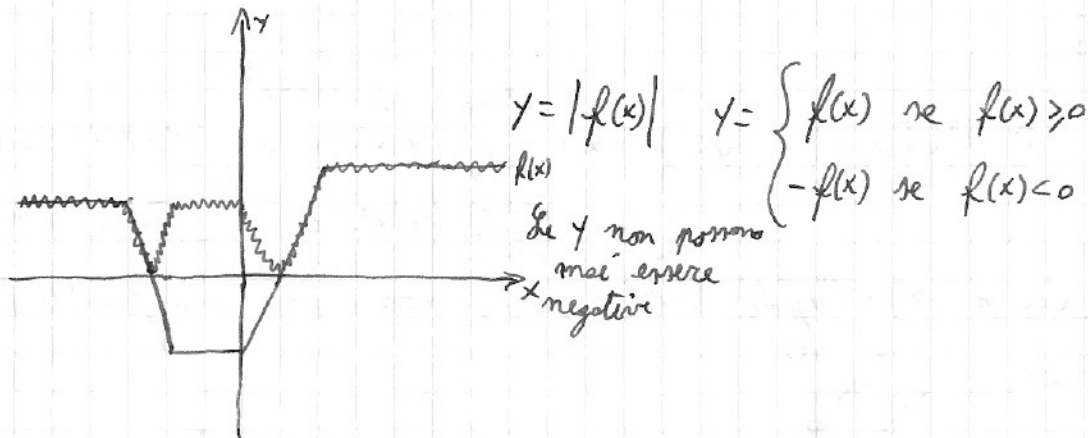 y
y = |f(x)| y = { f(x) se f(x) ≥ 0
-f(x) se f(x) < 0
f(x)
Le y non possono
mai essere
negative
x